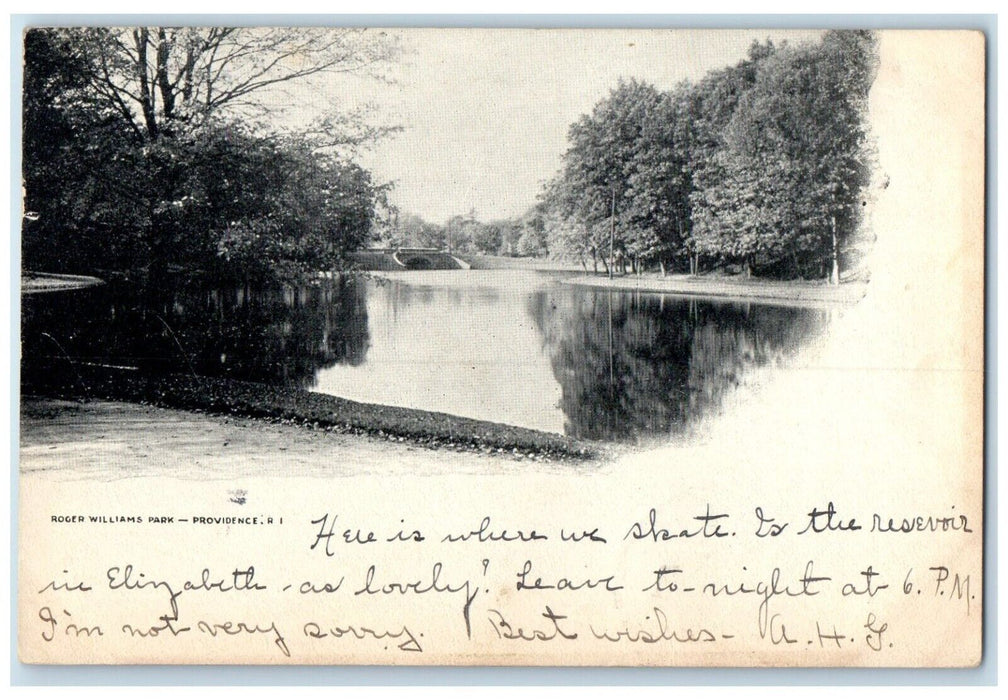 ROGER WILLIAMS PARK — PROVIDENCE, R I
Here is where we skate. Is the resevoir
in Elizabeth as lovely? Leave to-night at 6. P.M.
I'm not very sorry. Best wishes - A. H. G.